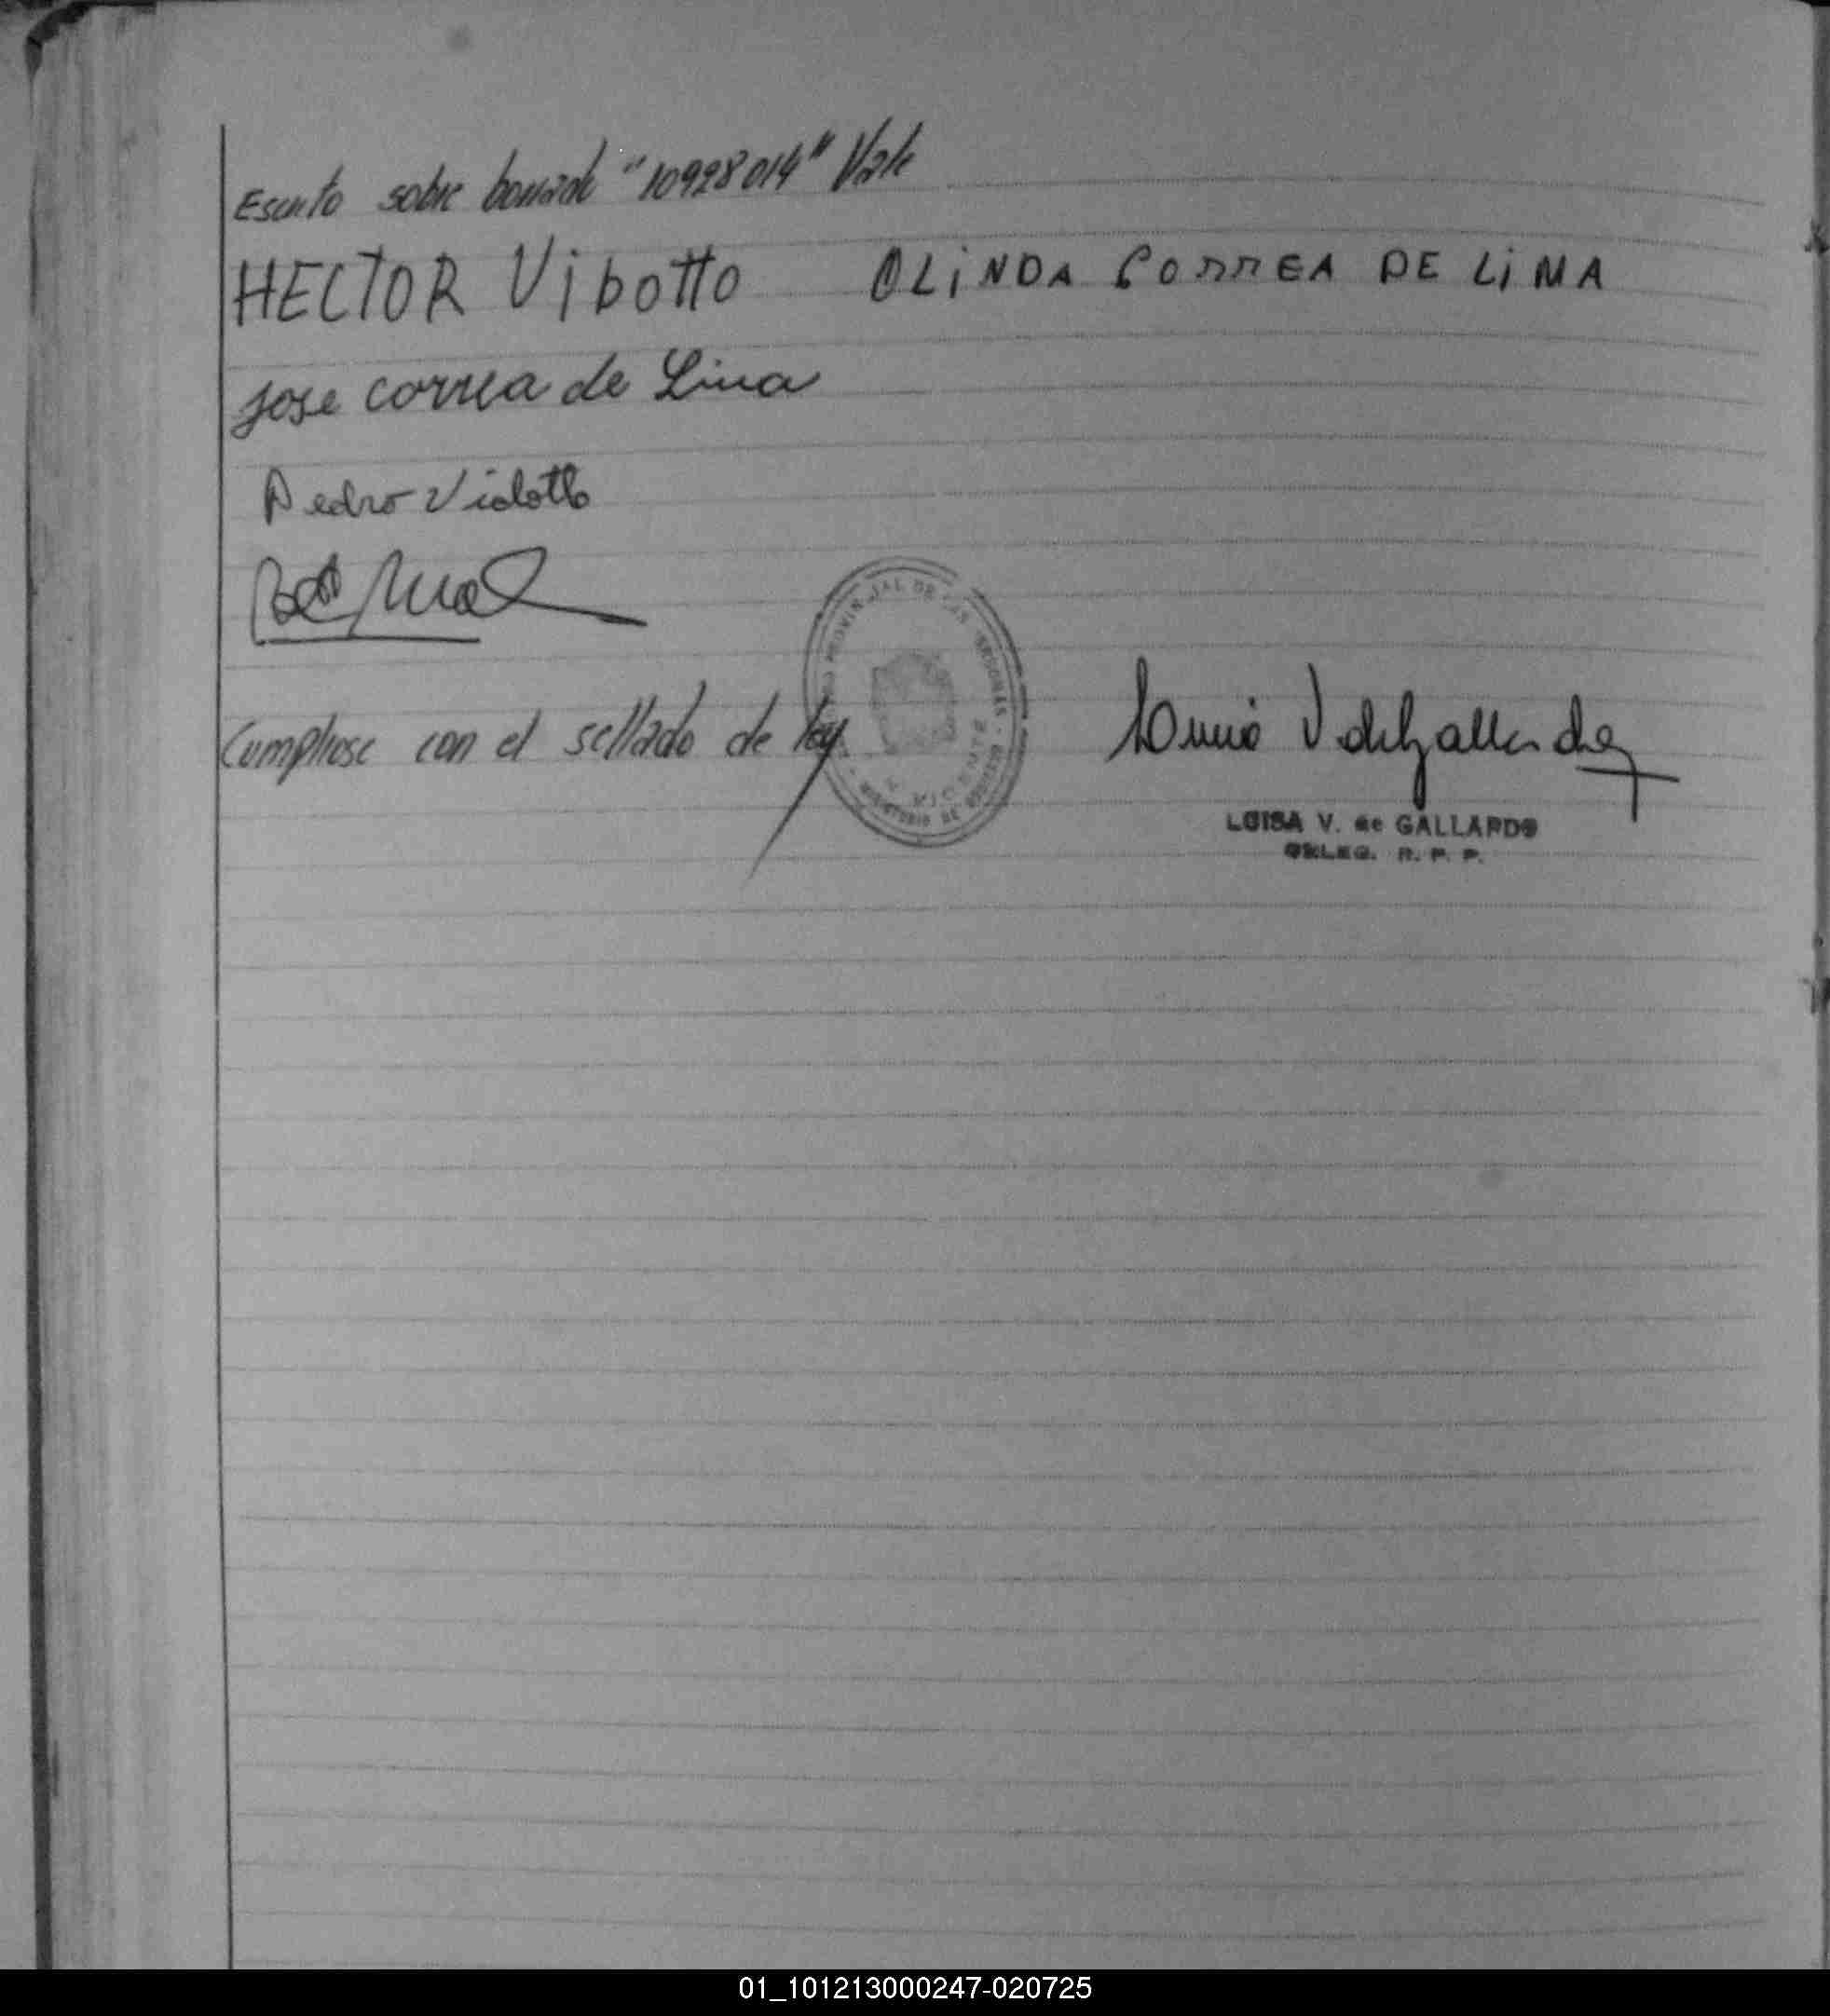 Escrito sobre borrado "10928014" Vale
HECTOR Vibotto OLiNDA CORREA DE LiMA
Jose correa de Lima
Pedro Violotto
Cumpliose con el sellado de ley
PROVINCIAL DE LAS PERSONAS
LUISA V. de GALLARDO
DELEG. R. P. P.
01_101213000247-020725